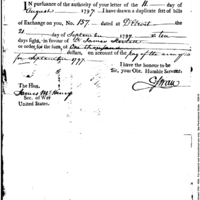 In pursuance of the authority of your letter of the 11. day of
August 1797 I have drawn a duplicate sett of bills
of Exchange on you, No. 137. dated at Detroit the
21 day of September 1797 at ten
days sight, in favour of James
or order, for the sum of One thousand
dollars, on account of the pay of the army
for September 1797.
I have the honour to be
Sir, your Obt. Humble Servant.
The Hon.
James McHenry
Sec. of War
United States.